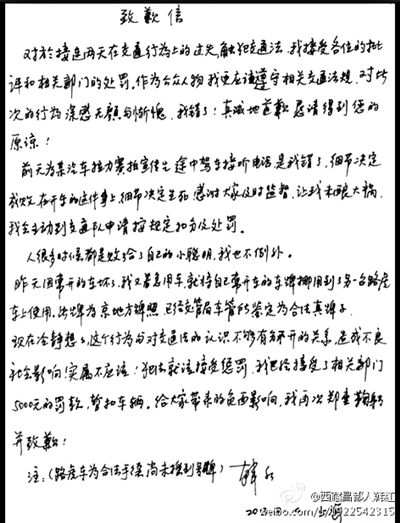 致歉信
对于接连两天在交通行为上的过失,触犯交通法,我接受各位的批
评和相关部门的处罚。作为公众人物我更应该遵守相关交通法规,对此
次的行为深感无颜与惭愧,我错了!真诚地道歉恳请得到您的
原谅!
前天为某汽车接力赛拍宣传片途中驾车接听电话是我错了,细节决定
成败,在开车的这件事上细节决定生死,感谢大家及时监督,让我未酿大祸,
我会主动到交通队申请按规定扣分及处罚。
人很多时候都是败给了自己的小聪明,我也不例外。
昨天因常开的车坏了,我又着急用车,就将自己常开车的车牌挪用到了另一台路虎
车上使用,此牌为京地方牌照,已经交管局车管所鉴定为合法真牌子。
现在冷静想想,这个行为与对交通法的认识不够有分不开的关系,造成不良
社会影响!实属不应该!犯法就该接受惩罚,我已经接受了相关部门
5000元的罚款,暂扣车辆。给大家带来的负面影响,我再次郑重鞠躬
并致歉!
注:(路虎车为合法手续尚未换到号牌) 韩红
2013.
@西藏昌都人韩红
weibo.com/1922542315